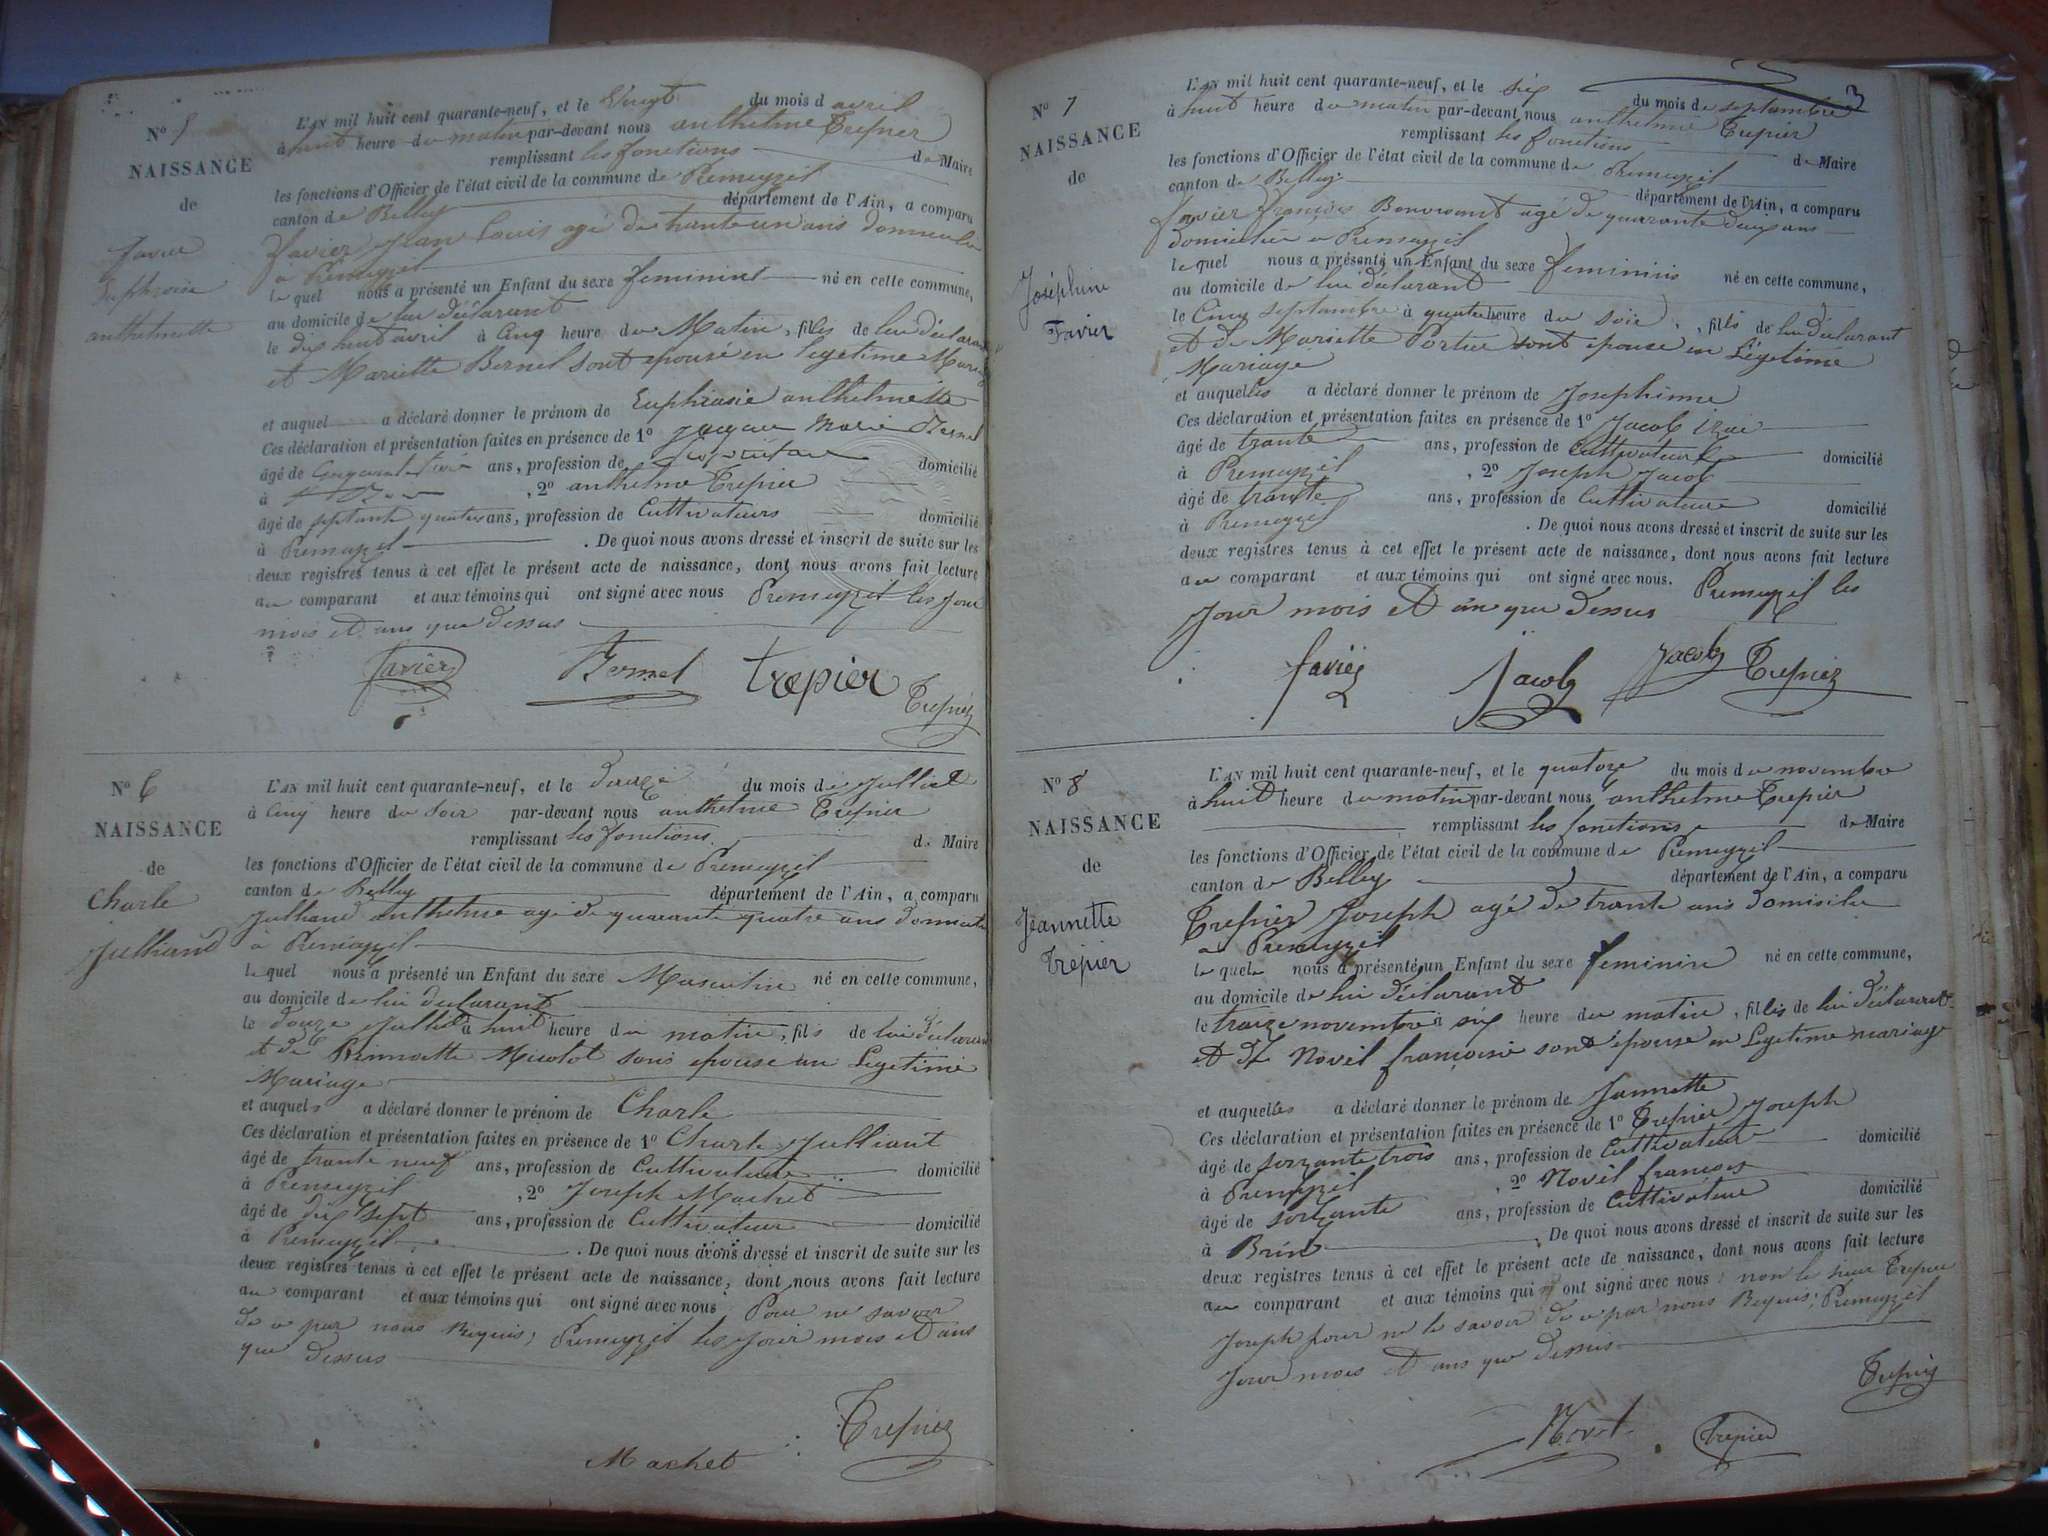 N° 5
NAISSANCE
de
Favier
Euphrosie
anthelmette
L'AN mil huit cent quarante-neuf, et le Vingt du mois d avril
à huit heure du matin par-devant nous anthelme Trepier
remplissant les fonctions de Maire
les fonctions d'Officier de l'état civil de la commune de Premeyzel
canton de Belley département de l'Ain, a comparu
favier Jean Louis agé de trante un ans
a Premeyzel
le quel nous a présenté un Enfant du sexe feminins né en cette commune,
au domicile de lui déclarant
le dix huit avril à Cinq heure du Matin, filles de lui déclarant
et Mariette Bernel sont epousé en legetime
et auquel a déclaré donner le prénom de Euphrasie anthelmette
Ces déclaration et présentation faites en présence de 1° Marie Bernel
âgé de ans, profession de domicilié
à , 2° anthelme Trepier
âgé de septante quatre ans, profession de Cultivateurs domicilié
à Premeyzel . De quoi nous avons dressé et inscrit de suite sur les
deux registres tenus à cet effet le présent acte de naissance, dont nous avons fait lecture
au comparant et aux témoins qui ont signé avec nous Premeyzel les jour
mois et ans que dessus
favier Bernel trepier Trepier
N° 6
NAISSANCE
de
Charle
Julliand
L'AN mil huit cent quarante-neuf, et le douze du mois de Julliet
à Cinq heure du Soir par-devant nous anthelme Trepier
remplissant les fonctions de Maire
les fonctions d'Officier de l'état civil de la commune de Premeyzel
canton de Belley département de l'Ain, a comparu
Julliand anthelme agé de quarante quatre ans
à Premeyzel
le quel nous a présenté un Enfant du sexe Masculin né en cette commune,
au domicile de lui declarant
le douze Julliet à huit heure du matin, fils de lui declarant
et de Mucolot sans epouse en Legetime
Mariage
et auquels a déclaré donner le prénom de Charle
Ces déclaration et présentation faites en présence de 1° Charle Julliant
âgé de trante neuf ans, profession de Cultivateur domicilié
à Premeyzel , 2° Joseph Machet
âgé de dix sept ans, profession de Cultivateur domicilié
à Premeyzel . De quoi nous avons dressé et inscrit de suite sur les
deux registres tenus à cet effet le présent acte de naissance, dont nous avons fait lecture
au comparant et aux témoins qui ont signé avec nous Pour ne savoir
de a par nous Requis; Premeyzel les Jour mois et ans
que dessus
Trepier
Machet
3
N° 7
NAISSANCE
de
Joséphine
Favier
L'AN mil huit cent quarante-neuf, et le six du mois de septembre
à huit heure du matin par-devant nous anthelme Trepier
remplissant les fonctions de Maire
les fonctions d'Officier de l'état civil de la commune de Premeyzel
canton de Belley département de l'Ain, a comparu
favier françois Bonvivant agé de quarante deux ans
domicilié a Premeyzel
le quel nous a présenté un Enfant du sexe feminins né en cette commune,
au domicile de lui déclarant
le Cinq septembre à quatre heure du soir, filles de lui déclarant
et de Mariette Portier sont epouse en Légetime
Mariage
et auquelles a déclaré donner le prénom de Josephinne
Ces déclaration et présentation faites en présence de 1° Jacob
âgé de trante ans, profession de Cultivateur domicilié
à Premeyzel , 2° Joseph Jacob
âgé de trante ans, profession de Cultivateur domicilié
à Premeyzel . De quoi nous avons dressé et inscrit de suite sur les
deux registres tenus à cet effet le présent acte de naissance, dont nous avons fait lecture
au comparant et aux témoins qui ont signé avec nous. Premeyzel les
Jour mois et an que dessus
favier Jacob Jacob Trepier
N° 8
NAISSANCE
de
Jeannette
Trépier
L'AN mil huit cent quarante-neuf, et le quatorze du mois de novembre
à huit heure du matin par-devant nous anthelme Trepier
remplissant les fonctions de Maire
les fonctions d'Officier de l'état civil de la commune de Premeyzel
canton de Belley département de l'Ain, a comparu
Trepier Joseph agé de trante ans domisilie
a Premeyzel
le quele nous a présenté un Enfant du sexe feminin né en cette commune,
au domicile de lui déclarant
le traize novembre à six heure du matin, filles de lui déclarant
et de Novel françoise sont épouse en Legetime mariage
et auquelles a déclaré donner le prénom de Jannette
Ces déclaration et présentation faites en présence de 1° Trepier Joseph
âgé de soizante trois ans, profession de Cultivateur domicilié
à Premeyzel , 2° Novel francois
âgé de soizante ans, profession de Cultivateur domicilié
à Brins . De quoi nous avons dressé et inscrit de suite sur les
deux registres tenus à cet effet le présent acte de naissance, dont nous avons fait lecture
au comparant et aux témoins qui ont signé avec nous non le sieur Trepier
Joseph pour ne le savoir de a par nous Requis; Premeyzel
Jour mois et ans que dessus
Trepier
Novel Trepier